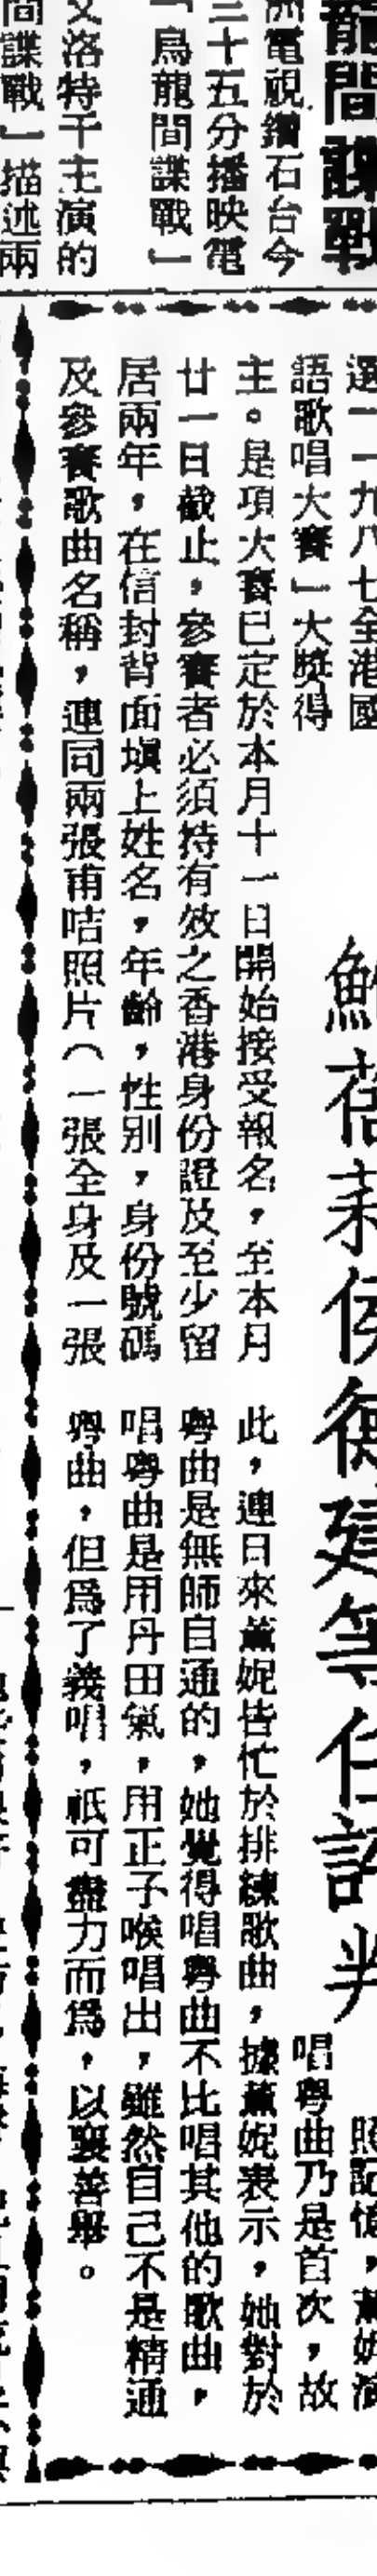 龍間諜戰
洲電視鑽石台今
三十五分播映電
「烏龍間諜戰」
艾洛特千主演的
間諜戰」描述兩
選一一九八七全港國
語歌唱大賽」大獎得
主。是項大賽已定於本月十一日開始接受報名,至本月
廿一日截止,參賽者必須持有效之香港身份證及至少留
居兩年,在信封背面填上姓名,年齡,性別,身份號碼
及參賽歌曲名稱,連同兩張甫咭照片(一張全身及一張
侯德建等任評判
照記憶,薰妮演
唱粵曲乃是首次,故
此,連日來薰妮皆忙於排練歌曲,據薰妮表示,她對於
粵曲是無師自通的,她覺得唱粵曲不比唱其他的歌曲,
唱粵曲是用丹田氣,用正子喉唱出,雖然自己不是精通
粵曲,但爲了義唱,祇可盡力而爲,以襄善舉。